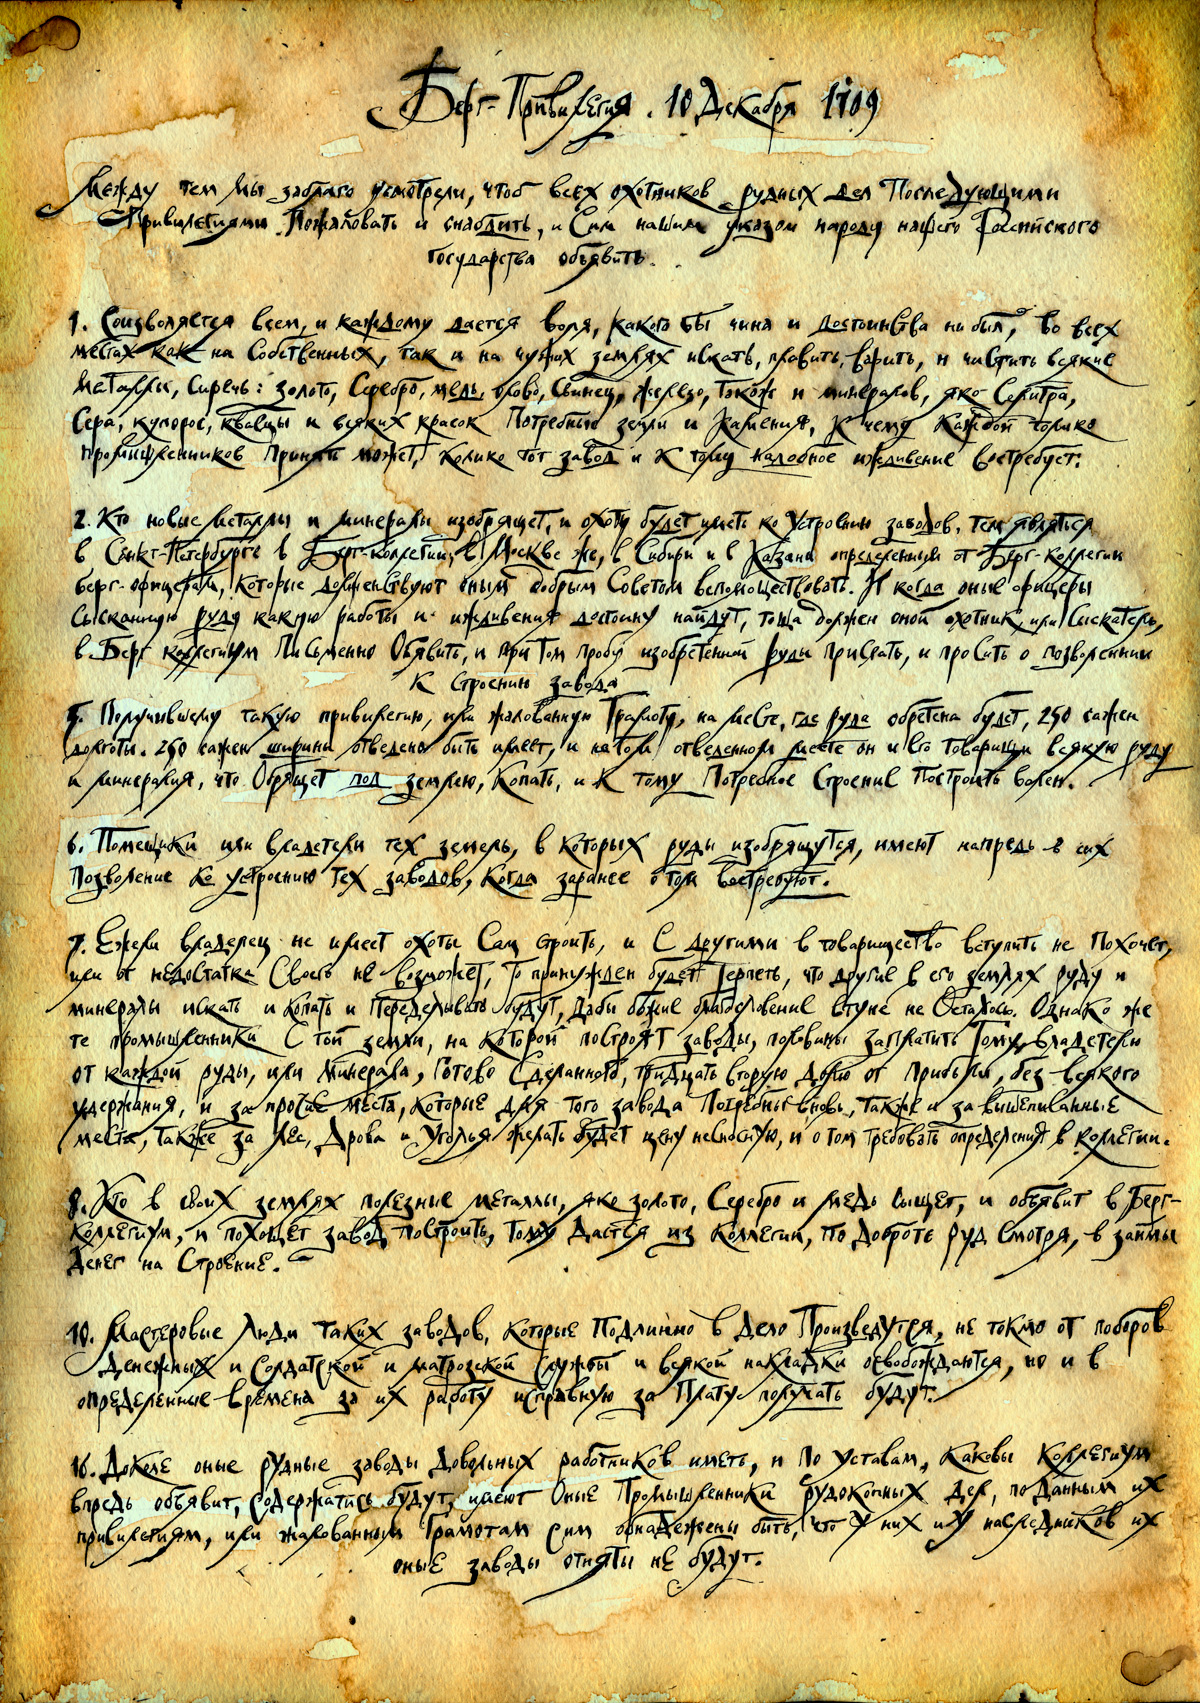 Берг-Привилегия. 10 Декабря 1709
Между тем мы заблаго усмотрели, чтоб всех охотников рудных дел Последующими
Привилегиями Пожаловать и снабдить, и Сим нашим указом народу нашего Российского
государства объявить.
1. Соизволяется всем, и каждому дается воля, какого бы чина и достоинства ни был, во всех
местах как на Собственных, так и на чужих землях искать, плавить, варить, и чистить всякие
металлы, сиречь: золото, Серебро, медь, олово, Свинец, железо, також и минералов, яко Селитра,
Сера, купорос, квасцы и всяких красок Потребные земли и каменья, к чему каждой толико
промышленников принять может, колико тот завод и к тому надобное иждивение востребует.
2. Кто новые металлы и минералы изобрящет, и охоту будет иметь ко Устроению заводов, тем явиться
в Санкт-Петербурге в Берг-коллегии, в Москве же, в Сибири и в Казани определенным от Берг-коллегии
берг-офицерам, которые долженствуют оным добрым Советом вспомоществовать. И когда оные офицеры
Сысканную руду какую работы и иждивения достойну найдут, тогда должен оной охотник, или Сыскатель,
в Берг коллегиум Письменно Объявить, и при том пробу изобретенной руды прислать, и просить о позволении
к Строению завода
5. Получившему такую привилегию, или жалованную Грамоту, на месте, где руда обретена будет, 250 сажен
долготы. 250 сажен ширины отведено быть имеет, и на том отведенном месте он и его товарищи всякую руду
и минералия, что Обрящет под землею, Копать, и К тому Потребное Строение Построить волен.
6. Помещики или владетели тех земель, в которых руды изобрящутся, имеют напредь в сих
Позволение ко устроению тех заводов, когда заранее о том востребуют.
7. Ежели владелец не имеет охоты Сам строить, и С другими в товарищество вступить не Похочет,
или от недостатка Своего не возможет, То принужден будет Терпеть, что другие в его землях руду и
минералы искать и копать и Переделывать будут, дабы божие благословение втуне не Осталось. Однако же
те промышленники С той земли, на которой построят заводы, повинны заплатить Тому владетели
от каждой руды, или минерала, Готово Сделанного, тридцать вторую долю от Прибыли, без всякого
удержания, и за прочие места, которые для того завода Потребные вновь, также и за вышеписанные
места, также за лес, Дрова и Уголья желать будет цену несносную, и о том требовать определения в коллегии.
8. Кто в своих землях полезные металлы, яко золото, Серебро и медь сыщет, и объявит в Берг-
Коллегиум, и похощет завод построить, тому Дается из Коллегии, по доброте руд Смотря, в займы
Денег на Строение.
10. Мастеровые люди таких заводов, которые Подлинно в Дело Произведутся, не токмо от поборов
Денежных и Солдатской и матрозской Службы и всякой накладки освобождаются, но и в
определенные времена за их работу исправную за Плату получать будут.
16. Доколе оные рудные заводы Довольных работников иметь, и по Уставам, каковы Коллегиум
впредь объявит, Содержатись будут, имеют Оные Промышленники рудокопных дел, по данным их
привилегиям, или жалованным Грамотам сим обнадежены быть, что У них и У наследников их
оные заводы отняты не будут.